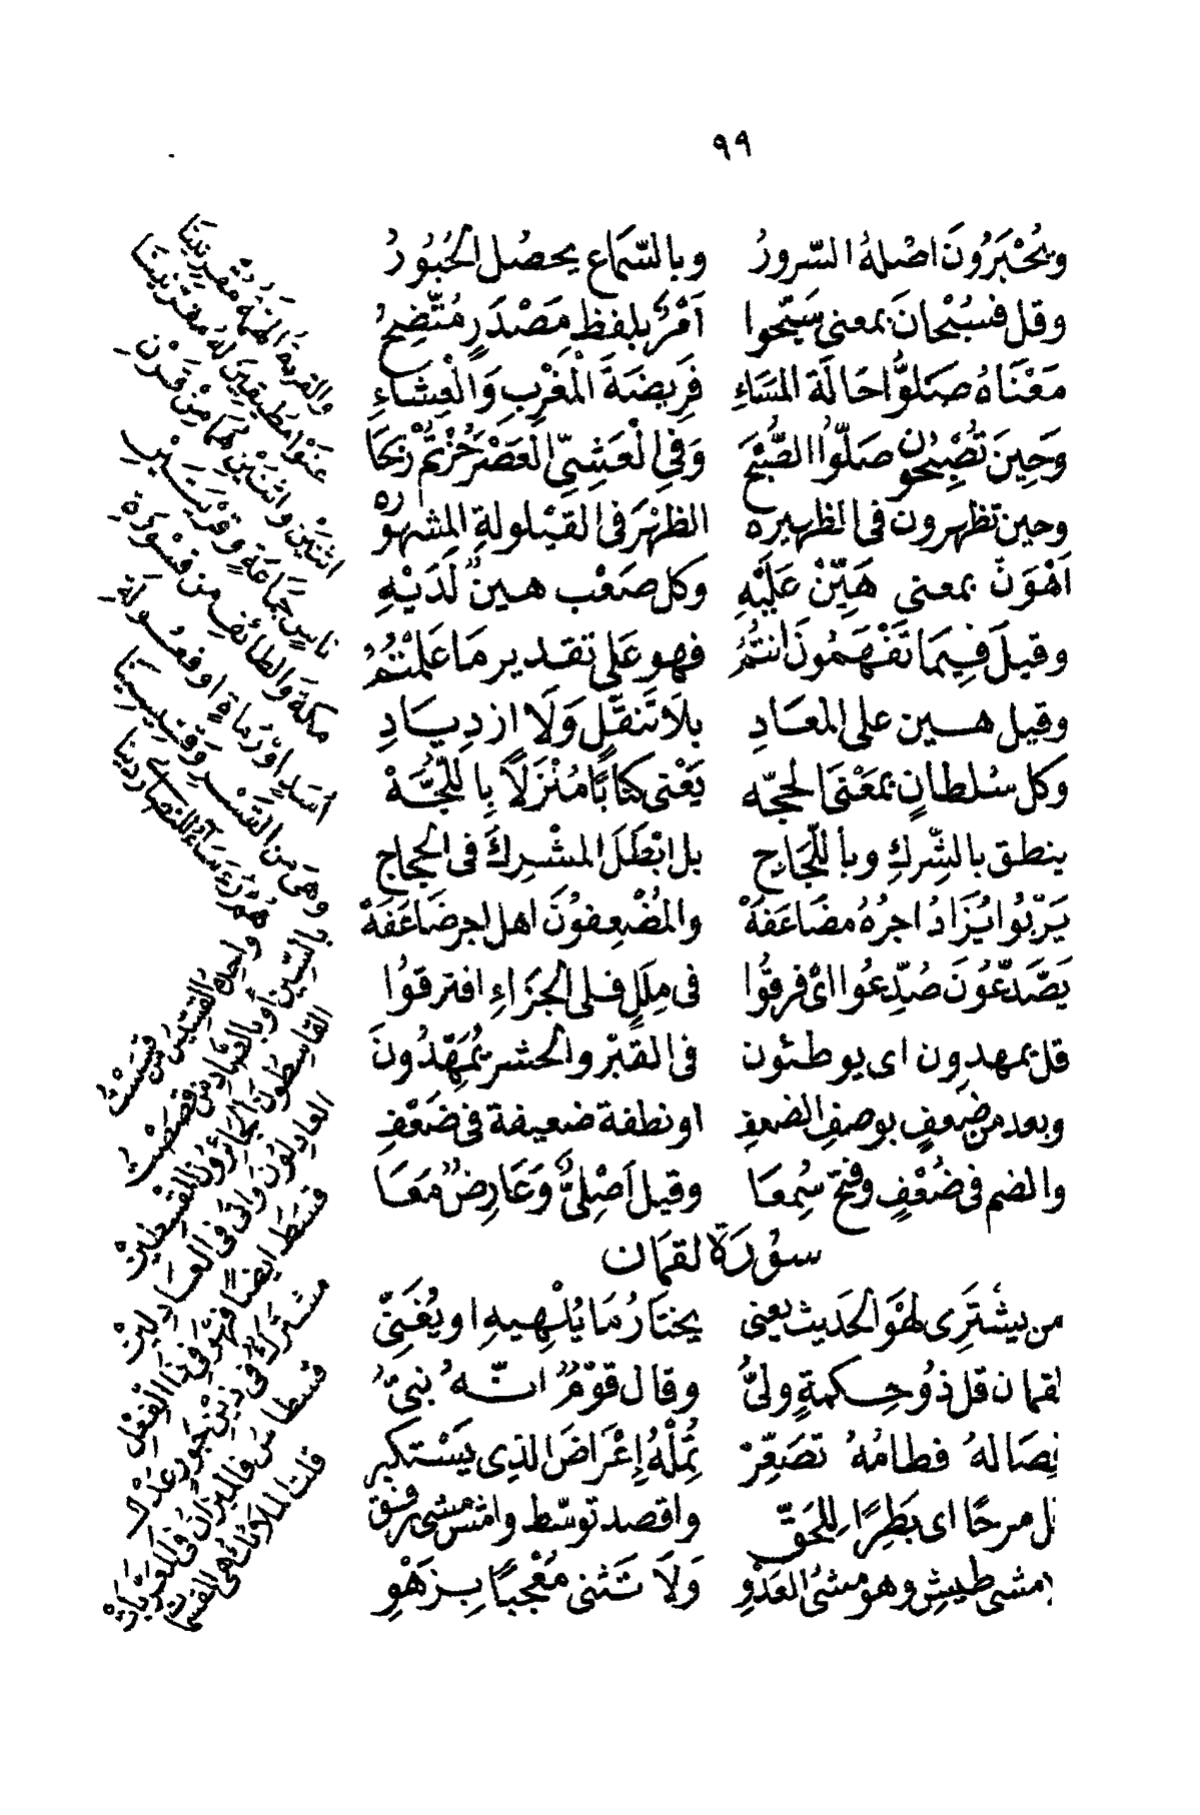 ٩٩
ويُحْبَرُونَ اصْلهُ السّرورُ وبالسَّمَاع يحصُل الحُبُورُ
وقل فسُبْحانَ بمعنى سَبّحوا اَمْرٌ بلفظِ مَصْدَرٍ مُتَّضِحُ
مَعْنَاهُ صَلوُّا حَالَة المسَاءِ فَرِيضَةَ الْمَغْرِبِ وَالْعِشَاءِ
وَحِينَ تُصْبِحُونَ صَلّوُا الصُّبْحَ وَفِي الْعَشِيّ العَصْرَ حُزْتُمْ رِبْحَا
وحين تظهرون فى الظهيره الظهْرَ فى القَيْلولةِ المشهوره
اَهْوَنُ بمعنى هَيِّنٌ عَلَيْهِ وكل صَعْب هينٌ لَدَيْهِ
وقيلَ فِيمَا تَفْهَمُونَ انتمُ فهو عَلى تقدير مَا عَلمْتُمُ
وقيل هين على المعَادِ بلَا تَنَقّلٍ وَلَا ازدِيَادِ
وكل سُلطانٍ بمَعْنَى الحجّه يَعْنى كتابًا مُنْزَلًا بِاللُّجَّهْ
ينطق بالشِّركِ وبِاللّجَاجِ بل ابْطَلَ المشْرِكَ فى الحِجَاجِ
يَرْبُوا يُزَادُ اجرُهُ مضَاعَفَهْ والمُضْعِفُونَ اهل اجر ضَاعَفَهْ
يَصَّدَّعُونَ صُدِّعُوا اىْ فرقُوا فى مِلَلٍ فلى الجَزَاءِ افترقُوا
قل يمهدون اى يوطئون فى القبْر والحشر يُمَهِّدُونَ
وبعد من ضَعفٍ بوصفِ الضعفِ او نطفة ضعيفة فى ضَعْفِ
والضم فى ضُعْفٍ وفتح سُمِعَا وقيل اَصْلىٌّ وَعَارِضٌ مَعَا
سُورَة لقمان
من يشْتَرِى لهْوَ الحَديث يعنى يختَارُ مَا يُلْهِيهِ او يُغَنِّى
لقمان قل ذُو حِكمةٍ ولىُّ وقال قوْمٌ انّهُ نبىُّ
فِصَالهُ فطامُهُ تصَعِّرْ تُمِلْهُ إعْرَاضَ الذِى يَسْتكبر
قل مرحًا اى بَطِرًا لِلحَقّ واقصد توسّط وامْشِ مشىَ رِفق
مشى طيشٍ وهو مشىُ العَدْوِ وَلَا تَثنى مُعْجبًا بِزَهْوِ
عَنَوْا مُطيقينَ لهُ
اثنَيْنِ واثنَيْنِ هُمَا مِنْ قَرْنِ
ناسٍ جَمَاعَةٍ وقَرْيَتَيْنِ
مكةَ والطائفِ من قسْوَرَةِ
أسَدٍ اوْ رُماةٍ او فَعْوَلةِ
وهىَ من القَسْرِ وَقِسِّيسِينَا
بالسِّين او بالصَّادِ من قصَصْتُ
القاسِطُونَ الجائرُونَ المقْسِطِينْ
العادِلوُنَ وَاتى فى العَادِلِينْ
قَسَطَ ايضًا فهْوَ فى ذَا الفِعْلِ
مشتَركٌ فى ذَيْنِ جَوْر عَدْلِ